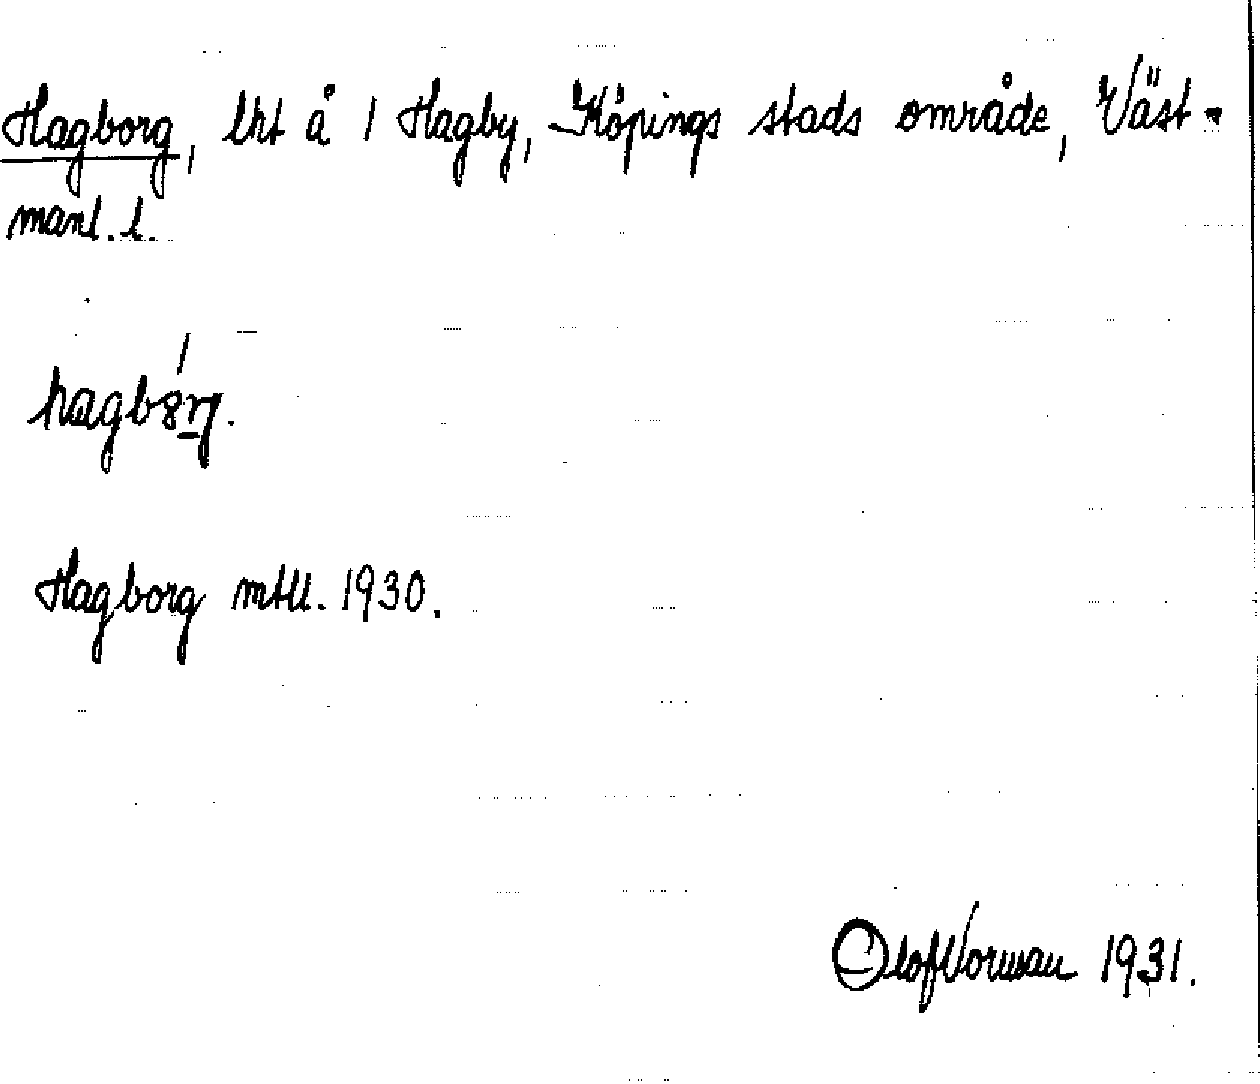 Hagborg, lht å 1 Hagby, Köpings stads område, Väst-
manl. l.
hagbȣ́rg.
Hagborg mtll. 1930.
Olof Vorman 1931.